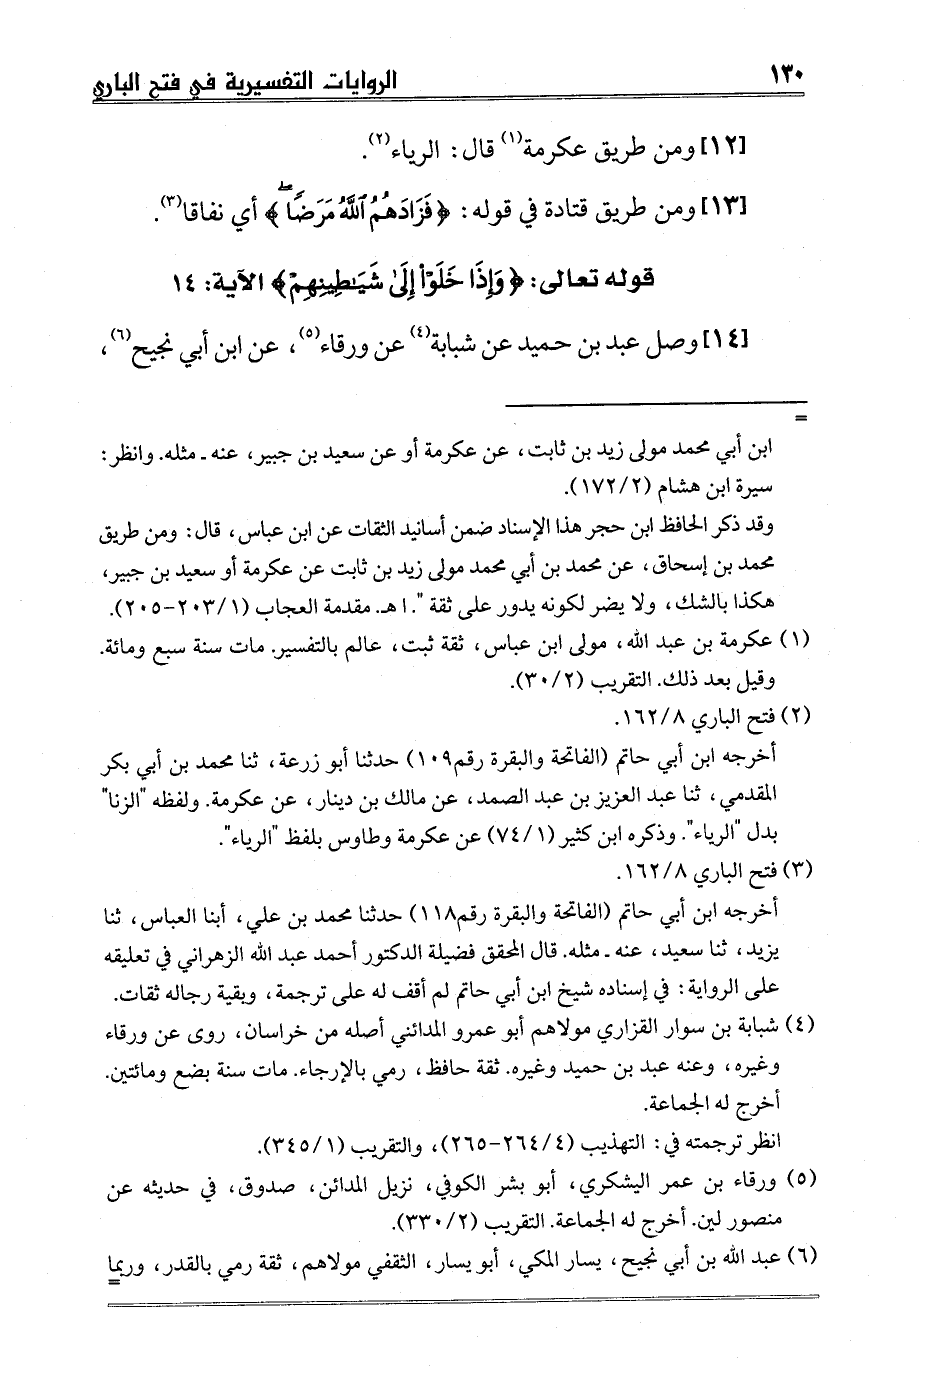 ١٣٠
الروايات التفسيرية في فتح الباري
[١٢] ومن طريق عكرمة(١) قال: الرياء(٢).
[١٣] ومن طريق قتادة في قوله: ﴿فَزَادَهُمُ ٱللَّهُ مَرَضًاۖ﴾ أي نفاقا(٣).
قوله تعالى: ﴿وَإِذَا خَلَوْا۟ إِلَىٰ شَيَـٰطِينِهِمْ﴾ الآية: ١٤
[١٤] وصل عبد بن حميد عن شبابة(٤) عن ورقاء(٥)، عن ابن أبي نجيح(٦)،
=
ابن أبي محمد مولى زيد بن ثابت، عن عكرمة أو عن سعيد بن جبير، عنه ـ مثله. وانظر:
سيرة ابن هشام (١٧٢/٢).
وقد ذكر الحافظ ابن حجر هذا الإسناد ضمن أسانيد الثقات عن ابن عباس، قال: ومن طريق
محمد بن إسحاق، عن محمد بن أبي محمد مولى زيد بن ثابت عن عكرمة أو سعيد بن جبير،
هكذا بالشك، ولا يضر لكونه يدور على ثقة ". ا هـ. مقدمة العجاب (٢٠٣/١-٢٠٥).
(١) عكرمة بن عبد الله، مولى ابن عباس، ثقة ثبت، عالم بالتفسير. مات سنة سبع ومائة.
وقيل بعد ذلك. التقريب (٣٠/٢).
(٢) فتح الباري ١٦٢/٨.
أخرجه ابن أبي حاتم (الفاتحة والبقرة رقم١٠٩) حدثنا أبو زرعة، ثنا محمد بن أبي بكر
المقدمي، ثنا عبد العزيز بن عبد الصمد، عن مالك بن دينار، عن عكرمة. ولفظه "الزنا"
بدل "الرياء". وذكره ابن كثير (٧٤/١) عن عكرمة وطاوس بلفظ "الرياء".
(٣) فتح الباري ١٦٢/٨.
أخرجه ابن أبي حاتم (الفاتحة والبقرة رقم١١٨) حدثنا محمد بن علي، أبنا العباس، ثنا
يزيد، ثنا سعيد، عنه ـ مثله. قال المحقق فضيلة الدكتور أحمد عبد الله الزهراني في تعليقه
على الرواية: في إسناده شيخ ابن أبي حاتم لم أقف له على ترجمة، وبقية رجاله ثقات.
(٤) شبابة بن سوار القزاري مولاهم أبو عمرو المدائني أصله من خراسان، روى عن ورقاء
وغيره، وعنه عبد بن حميد وغيره. ثقة حافظ، رمي بالإرجاء. مات سنة بضع ومائتين.
أخرج له الجماعة.
انظر ترجمته في: التهذيب (٢٦٤/٤-٢٦٥)، والتقريب (٣٤٥/١).
(٥) ورقاء بن عمر اليشكري، أبو بشر الكوفي، نزيل المدائن، صدوق، في حديثه عن
منصور لين. أخرج له الجماعة. التقريب (٣٣٠/٢).
(٦) عبد الله بن أبي نجيح، يسار المكي، أبو يسار، الثقفي مولاهم، ثقة رمي بالقدر، وربما
=